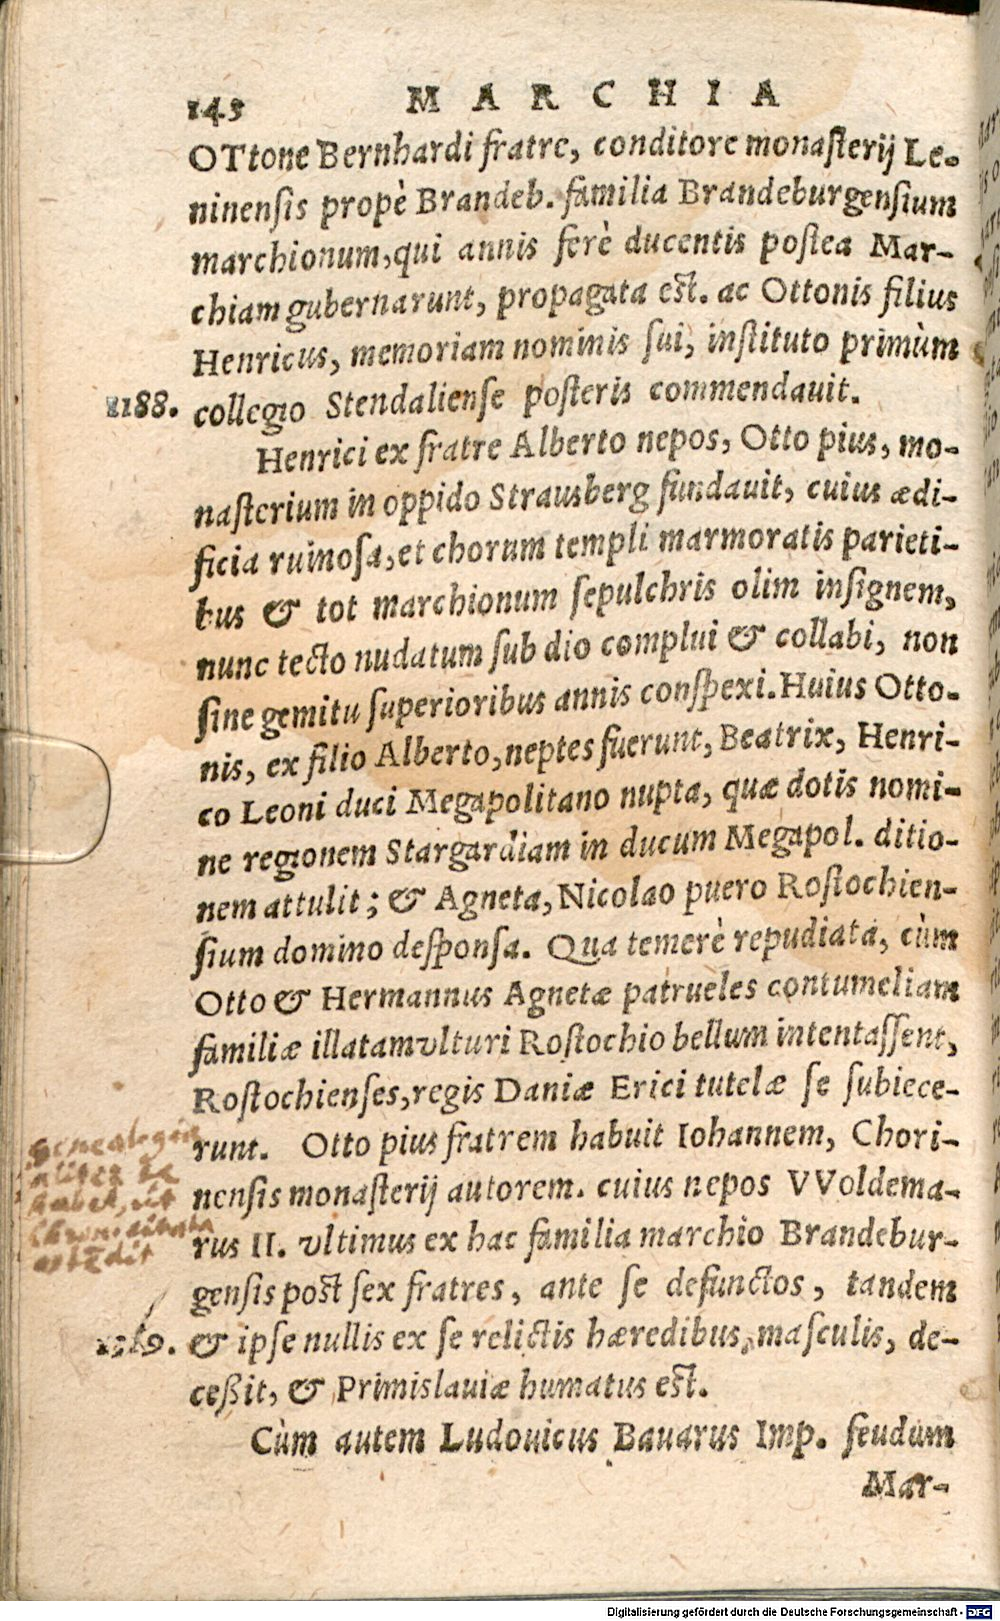 143 MARCHIA
OTtone Bernhardi fratre, conditore monaſterij Le-
ninenſis propè Brandeb. familia Brandeburgenſium
marchionum, qui annis ferè ducentis poſtea Mar-
chiam gubernarunt, propagata eſt. ac Ottonis filius
Henricus, memoriam nominis ſui, inſtituto primùm
1188. collegio Stendalienſe poſteris commendauit.
Henrici ex fratre Alberto nepos, Otto pius, mo-
naſterium in oppido Strausberg fundauit, cuius ædi-
ficia ruinoſa, et chorum templi marmoratis parieti-
bus & tot marchionum ſepulchris olim inſignem,
nunc tecto nudatum ſub dio complui & collabi, non
ſine gemitu ſuperioribus annis conſpexi. Huius Otto-
nis, ex filio Alberto, neptes fuerunt, Beatrix, Henri-
co Leoni duci Megapolitano nupta, quæ dotis nomi-
ne regionem Stargardiam in ducum Megapol. ditio-
nem attulit; & Agneta, Nicolao puero Roſtochien-
ſium domino deſponſa. Qua temerè repudiata, cùm
Otto & Hermannus Agnetæ patrueles contumeliam
familiæ illatam vlturi Roſtochio bellum intentaſſent,
Roſtochienſes, regis Daniæ Erici tutelæ ſe ſubiece-
runt. Otto pius fratrem habuit Iohannem, Chori-
nenſis monaſterij autorem. cuius nepos VVoldema-
rus II. vltimus ex hac familia marchio Brandebur-
genſis poſt ſex fratres, ante ſe defunctos, tandem
& ipſe nullis ex ſe relictis hæredibus, maſculis, de-
ceßit, & Primislauiæ humatus eſt.
Cùm autem Ludouicus Bauarus Imp. feudum
Mar-
Genealogia
aliter se
habet, ut
Digitalisierung gefördert durch die Deutsche Forschungsgemeinschaft - DFG